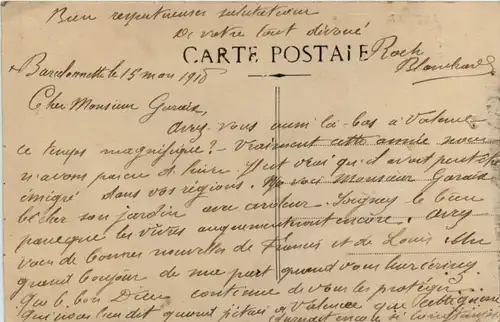 Bien respectueuses salutations
De votre tout dévoué
Roch
Blanchard
CARTE POSTALE
Barcelonnette le 15 mars 1918
Cher Monsieur Garais,
avez-vous aussi là-bas à Valence
ce temps magnifique? Vraiment cette année nous
n'avons pas eu d'hiver. Il est vrai qu'il avait peut-être
émigré dans vos régions. Monsieur Garais
bêcher son jardin avec ardeur. Soignez le bien
parce que les vivres augmenteront encore. avez
vous de bonnes nouvelles de Francis et de Louis. Un
grand bonjour de ma part quand vous leur écrirez
Que le bon Dieu continue de vous les protéger
quand j'étais à Valence que